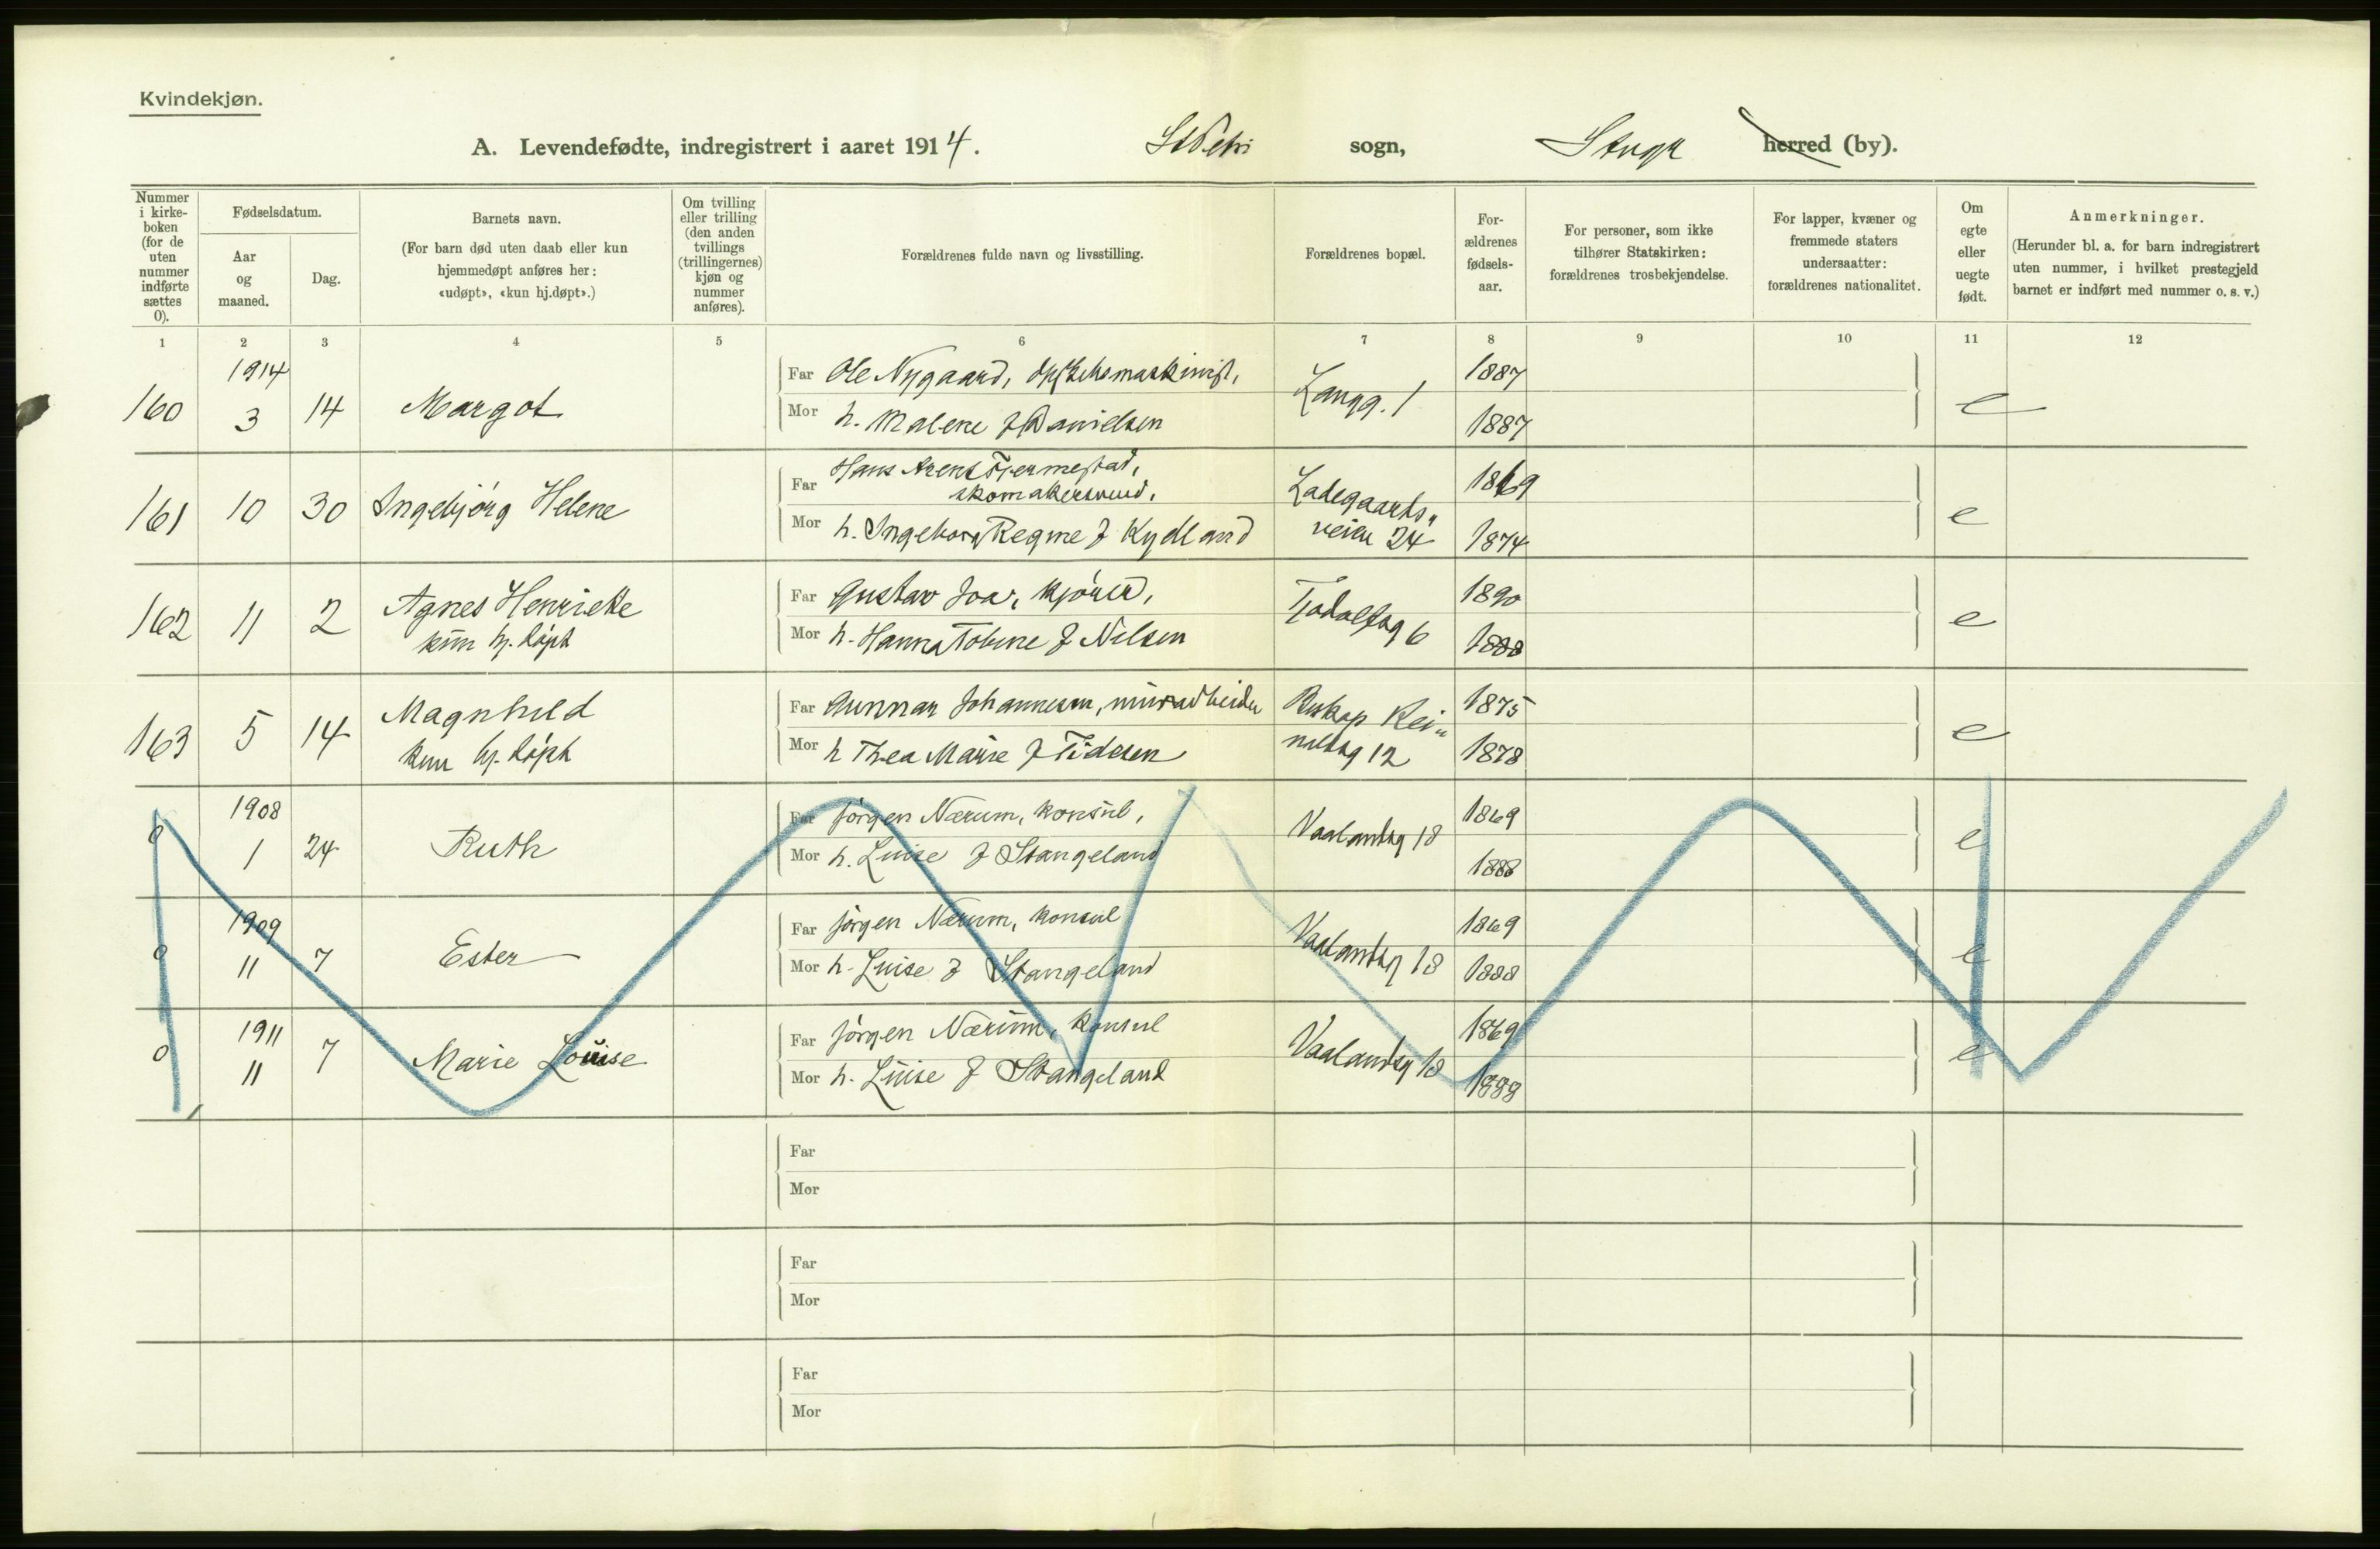 Kvindekjøn.
A. Levendefødte, indregistrert i aaret 1914. St Petri sogn, Stvgr herred (by).
Nummer i kirke-boken (for de uten nummer indførte sættes 0).
Fødselsdatum.
Aar og maaned.
Dag.
Barnets navn.
(For barn død uten daab eller kun hjemmedøpt anføres her: «udøpt», «kun hj.døpt».)
Om tvilling eller trilling (den anden tvillings (trillingernes) kjøn og nummer anføres).
Forældrenes fulde navn og livsstilling.
Forældrenes bopæl.
For-ældrenes fødsels-aar.
For personer, som ikke tilhører Statskirken: forældrenes trosbekjendelse.
For lapper, kvæner og fremmede staters undersaatter: forældrenes nationalitet.
Om egte eller uegte født.
Anmerkninger.
(Herunder bl. a. for barn indregistrert uten nummer, i hvilket prestegjeld barnet er indført med nummer o. s. v.)
1 2 3 4 5 6 7 8 9 10 11 12
1914 Far Ole Nygaard, 1887
160 3 14 Margot Langg. 1 e
Mor h. Malene f Danielsen 1887
Far Hans Arent Tjermestad, 1869
skomakersvend,
161 10 30 Ingebjørg Helene Ladegaards" e
Mor h. Ingeborg Regine f Kydland veien 24 1874
Far Gustav Joa, kjører, 1890
162 11 2 Agnes Henriette Tjodolfsg 6 e
kun hj. døpt Mor h. Hanna Tobine f Nilsen 1888
Far Gunnar Johannesen, murarbeider 1875
163 5 14 Magnhild e
kun hj. døpt Mor h Thea Marie f Tidesen 12 1878
1908 Far Jörgen Nærum, konsul, 1869
0 1 24 Ruth Vaalandsg 18 e
Mor h. Luise f Stangeland 1888
1909 Far Jörgen Nærum, konsul 1869
0 11 7 Ester Vaalandsg 18 e
Mor h. Luise f Stangeland 1888
1911 Far Jörgen Nærum, konsul 1869
0 11 7 Marie Louise Vaalandsg 18 e
Mor h. Luise f Stangeland 1888
Far
Mor
Far
Mor
Far
Mor